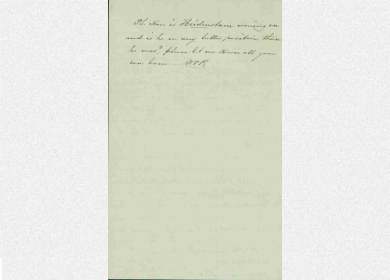 P.S. How is Heidenstam coming on
and is he in any better position than
he was? please let me know all you
can learn W.P.R.